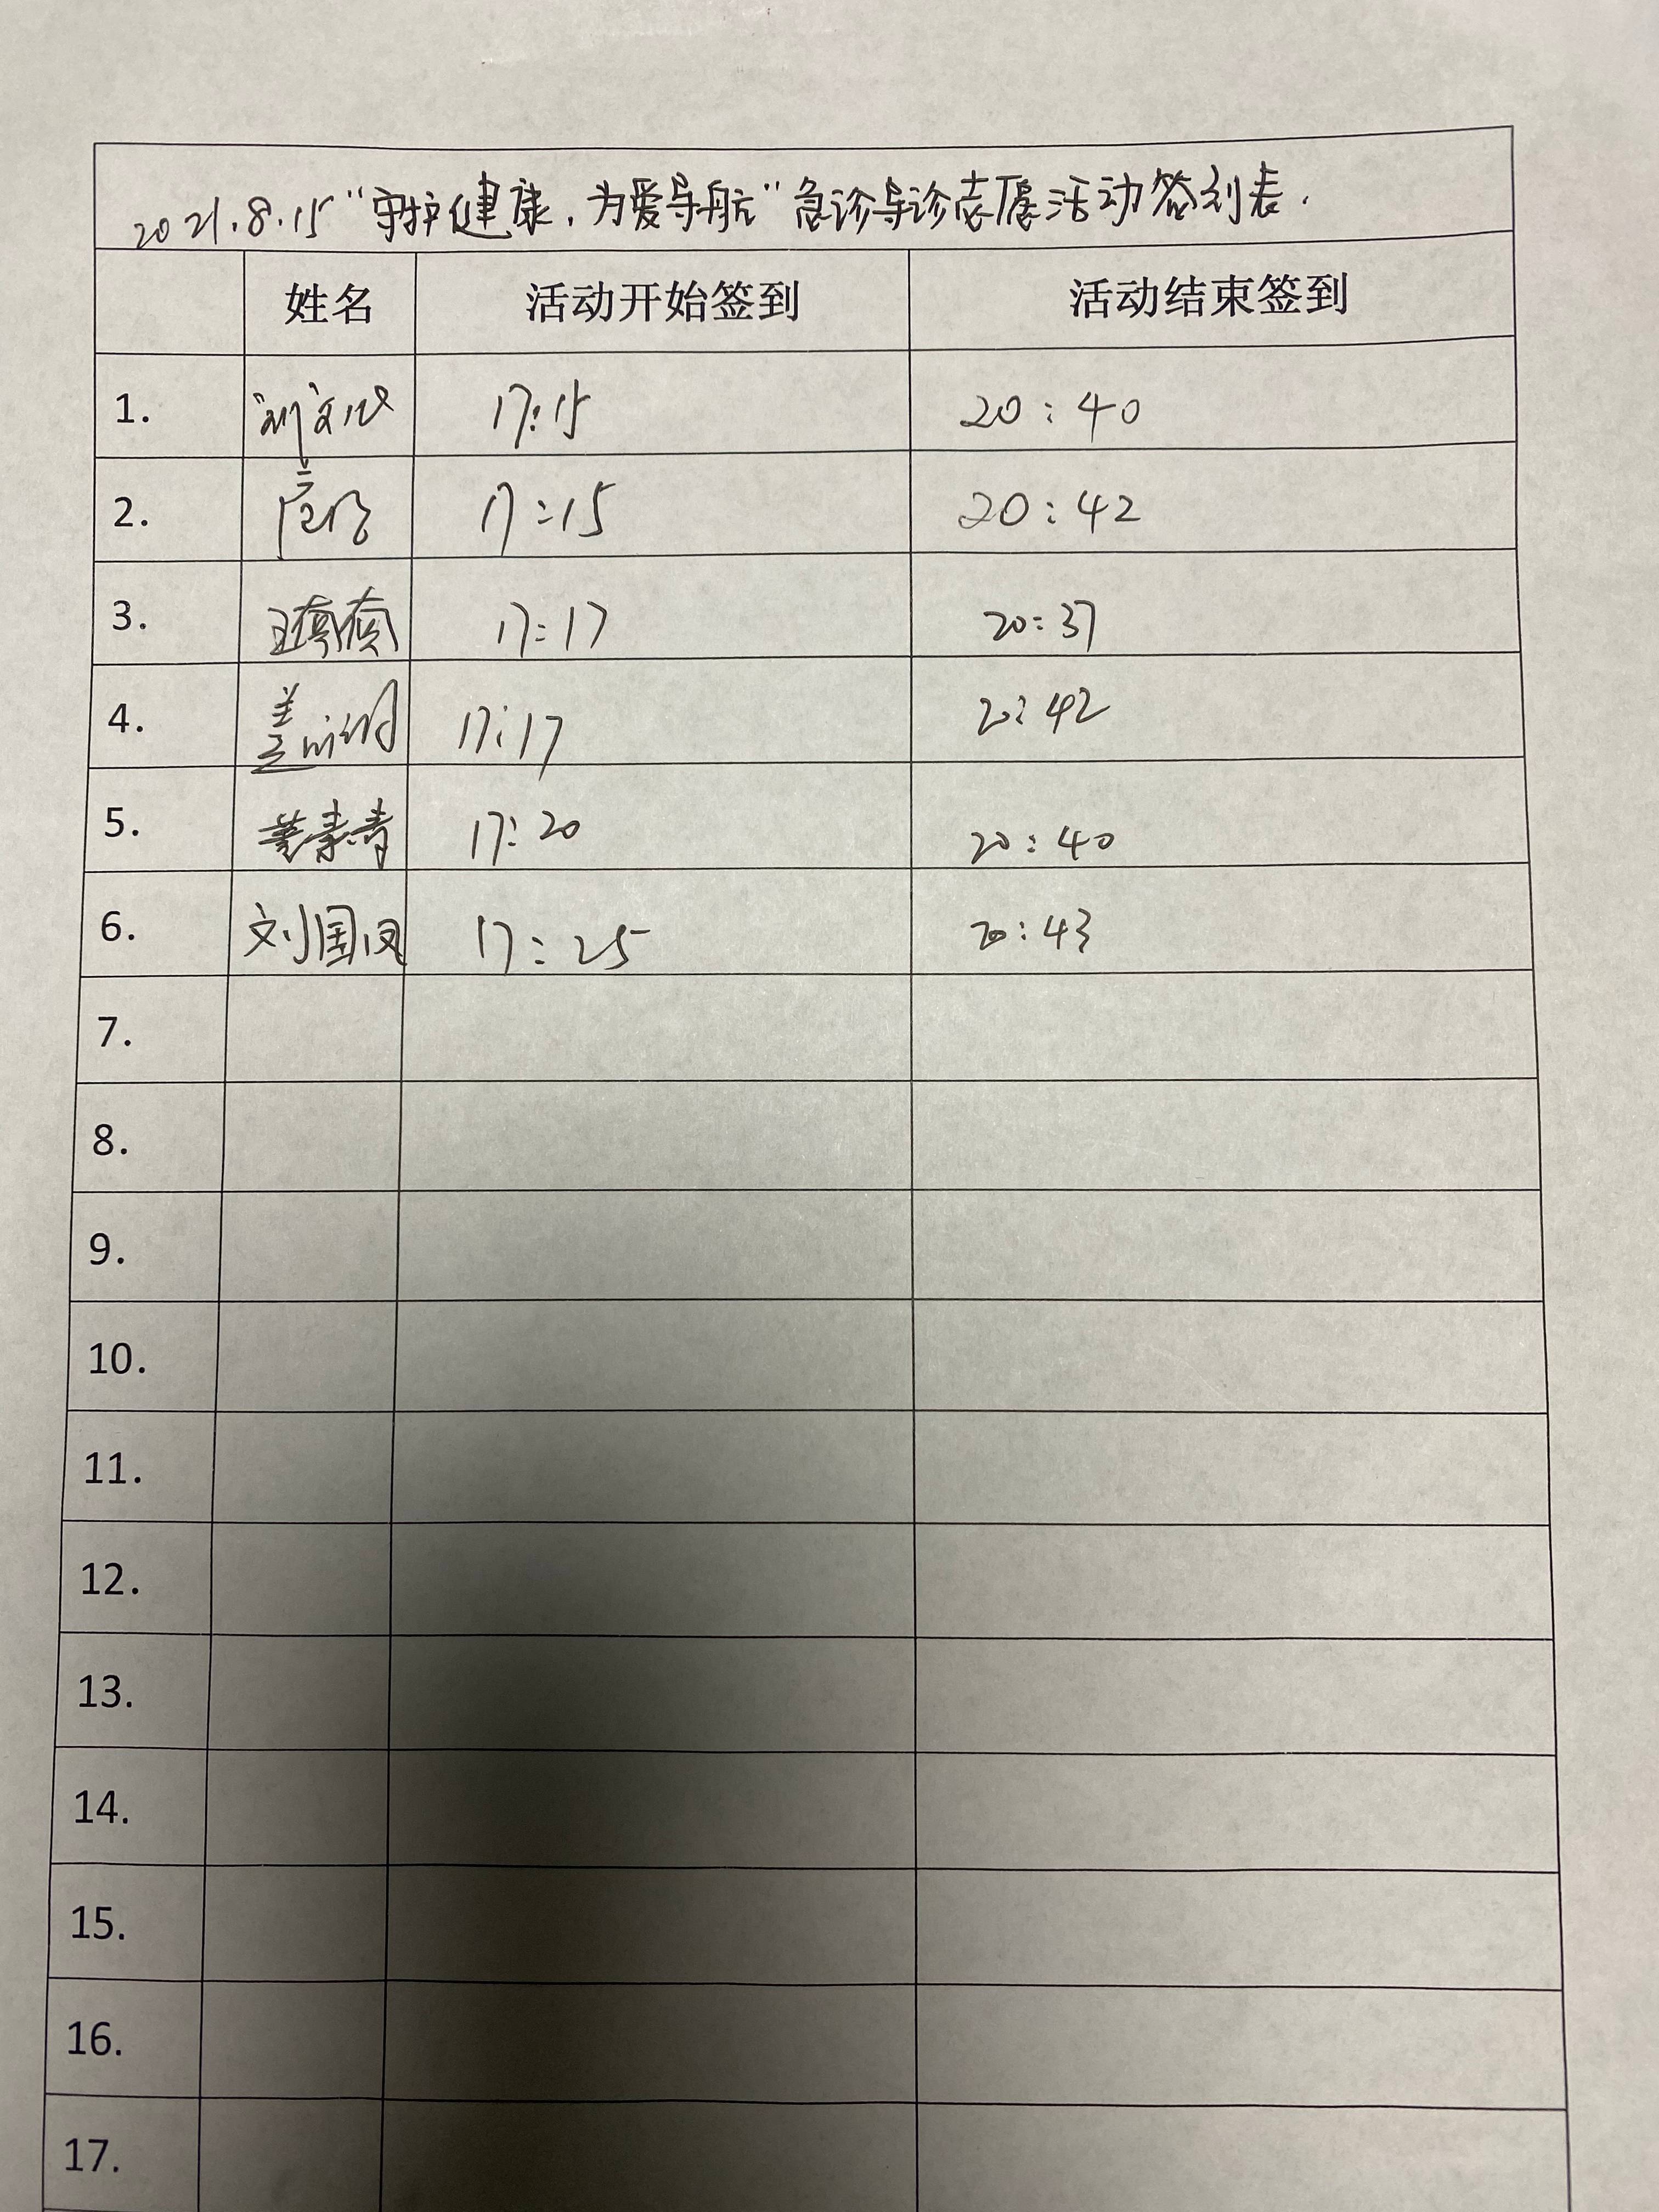 2021.8.15“守护健康，为爱导航”急诊导诊志愿活动签到表.
姓名 活动开始签到 活动结束签到
1. 17:15 20:40
2. 17:15 20:42
3. 17:17 20:37
4. 17:17 20:42
5. 黄素青 17:20 20:40
6. 刘国凤 17:25 20:43
7.
8.
9.
10.
11.
12.
13.
14.
15.
16.
17.